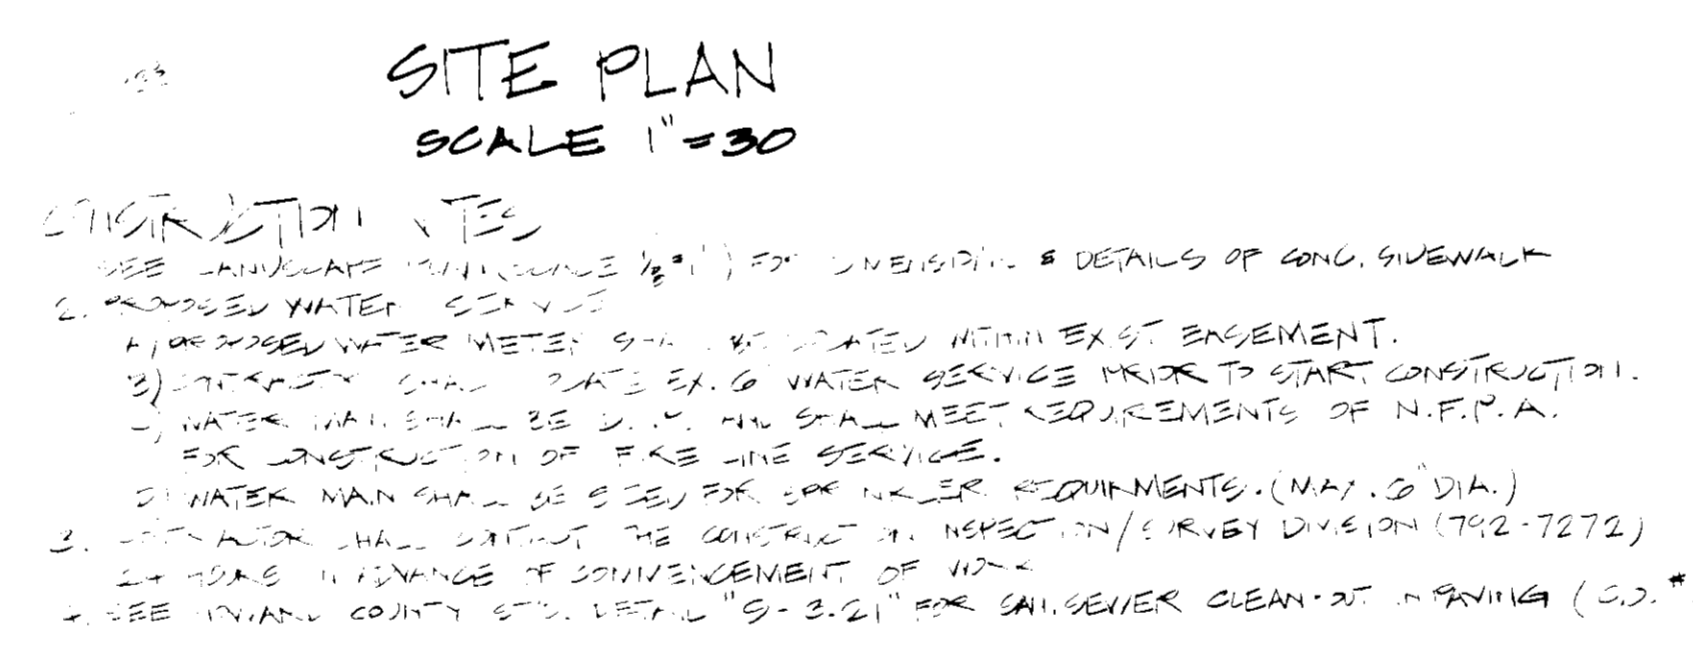 SITE PLAN
SCALE 1"=30
CONSTRUCTION NOTES
SEE LANDSCAPE PLAN (SCALE 1/8"=1') FOR DIMENSIONS & DETAILS OF CONC. SIDEWALK
2. PROPOSED WATER SERVICE
A) PROPOSED WATER METER SHALL BE LOCATED WITHIN EXIST EASEMENT.
B) CONTRACTOR SHALL LOCATE EX. 6" WATER SERVICE PRIOR TO START CONSTRUCTION.
C) WATER MAIN SHALL BE D.I.P. AND SHALL MEET REQUIREMENTS OF N.F.P.A.
FOR CONSTRUCTION OF FIRE LINE SERVICE.
D) WATER MAIN SHALL BE SIZED FOR SPRINKLER REQUIRMENTS. (MAX. 6" DIA.)
3. CONTRACTOR SHALL CONTACT THE CONSTRUCTION INSPECTION/SURVEY DIVISION (792-7272)
24 HOURS IN ADVANCE OF COMMENCEMENT OF WORK
4. SEE COUNTY STD. DETAIL "S-3.21" FOR SAN. SEWER CLEAN-OUT IN PAVING (